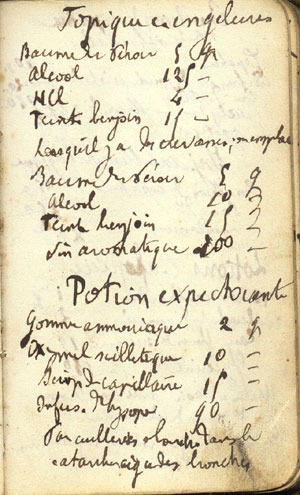 Topique engelures
Baume du Pérou 5 g
Alcool 125 –
HCl 4 –
Teint. benjoin 15 –
Lorsqu'il y a des crevasses, on emploie
Baume du Pérou 5 g
Alcool 10 –
Teint benjoin 15 –
Vin aromatique 200 –
Potion expectorante
Gomme ammoniaque 2 g
Oxymel scillitique 10 –
Sirop de capillaire 15 –
Infus. d'hysope 90 –
Par cuillerées à bouche dans le
catarrhe aigu des bronches